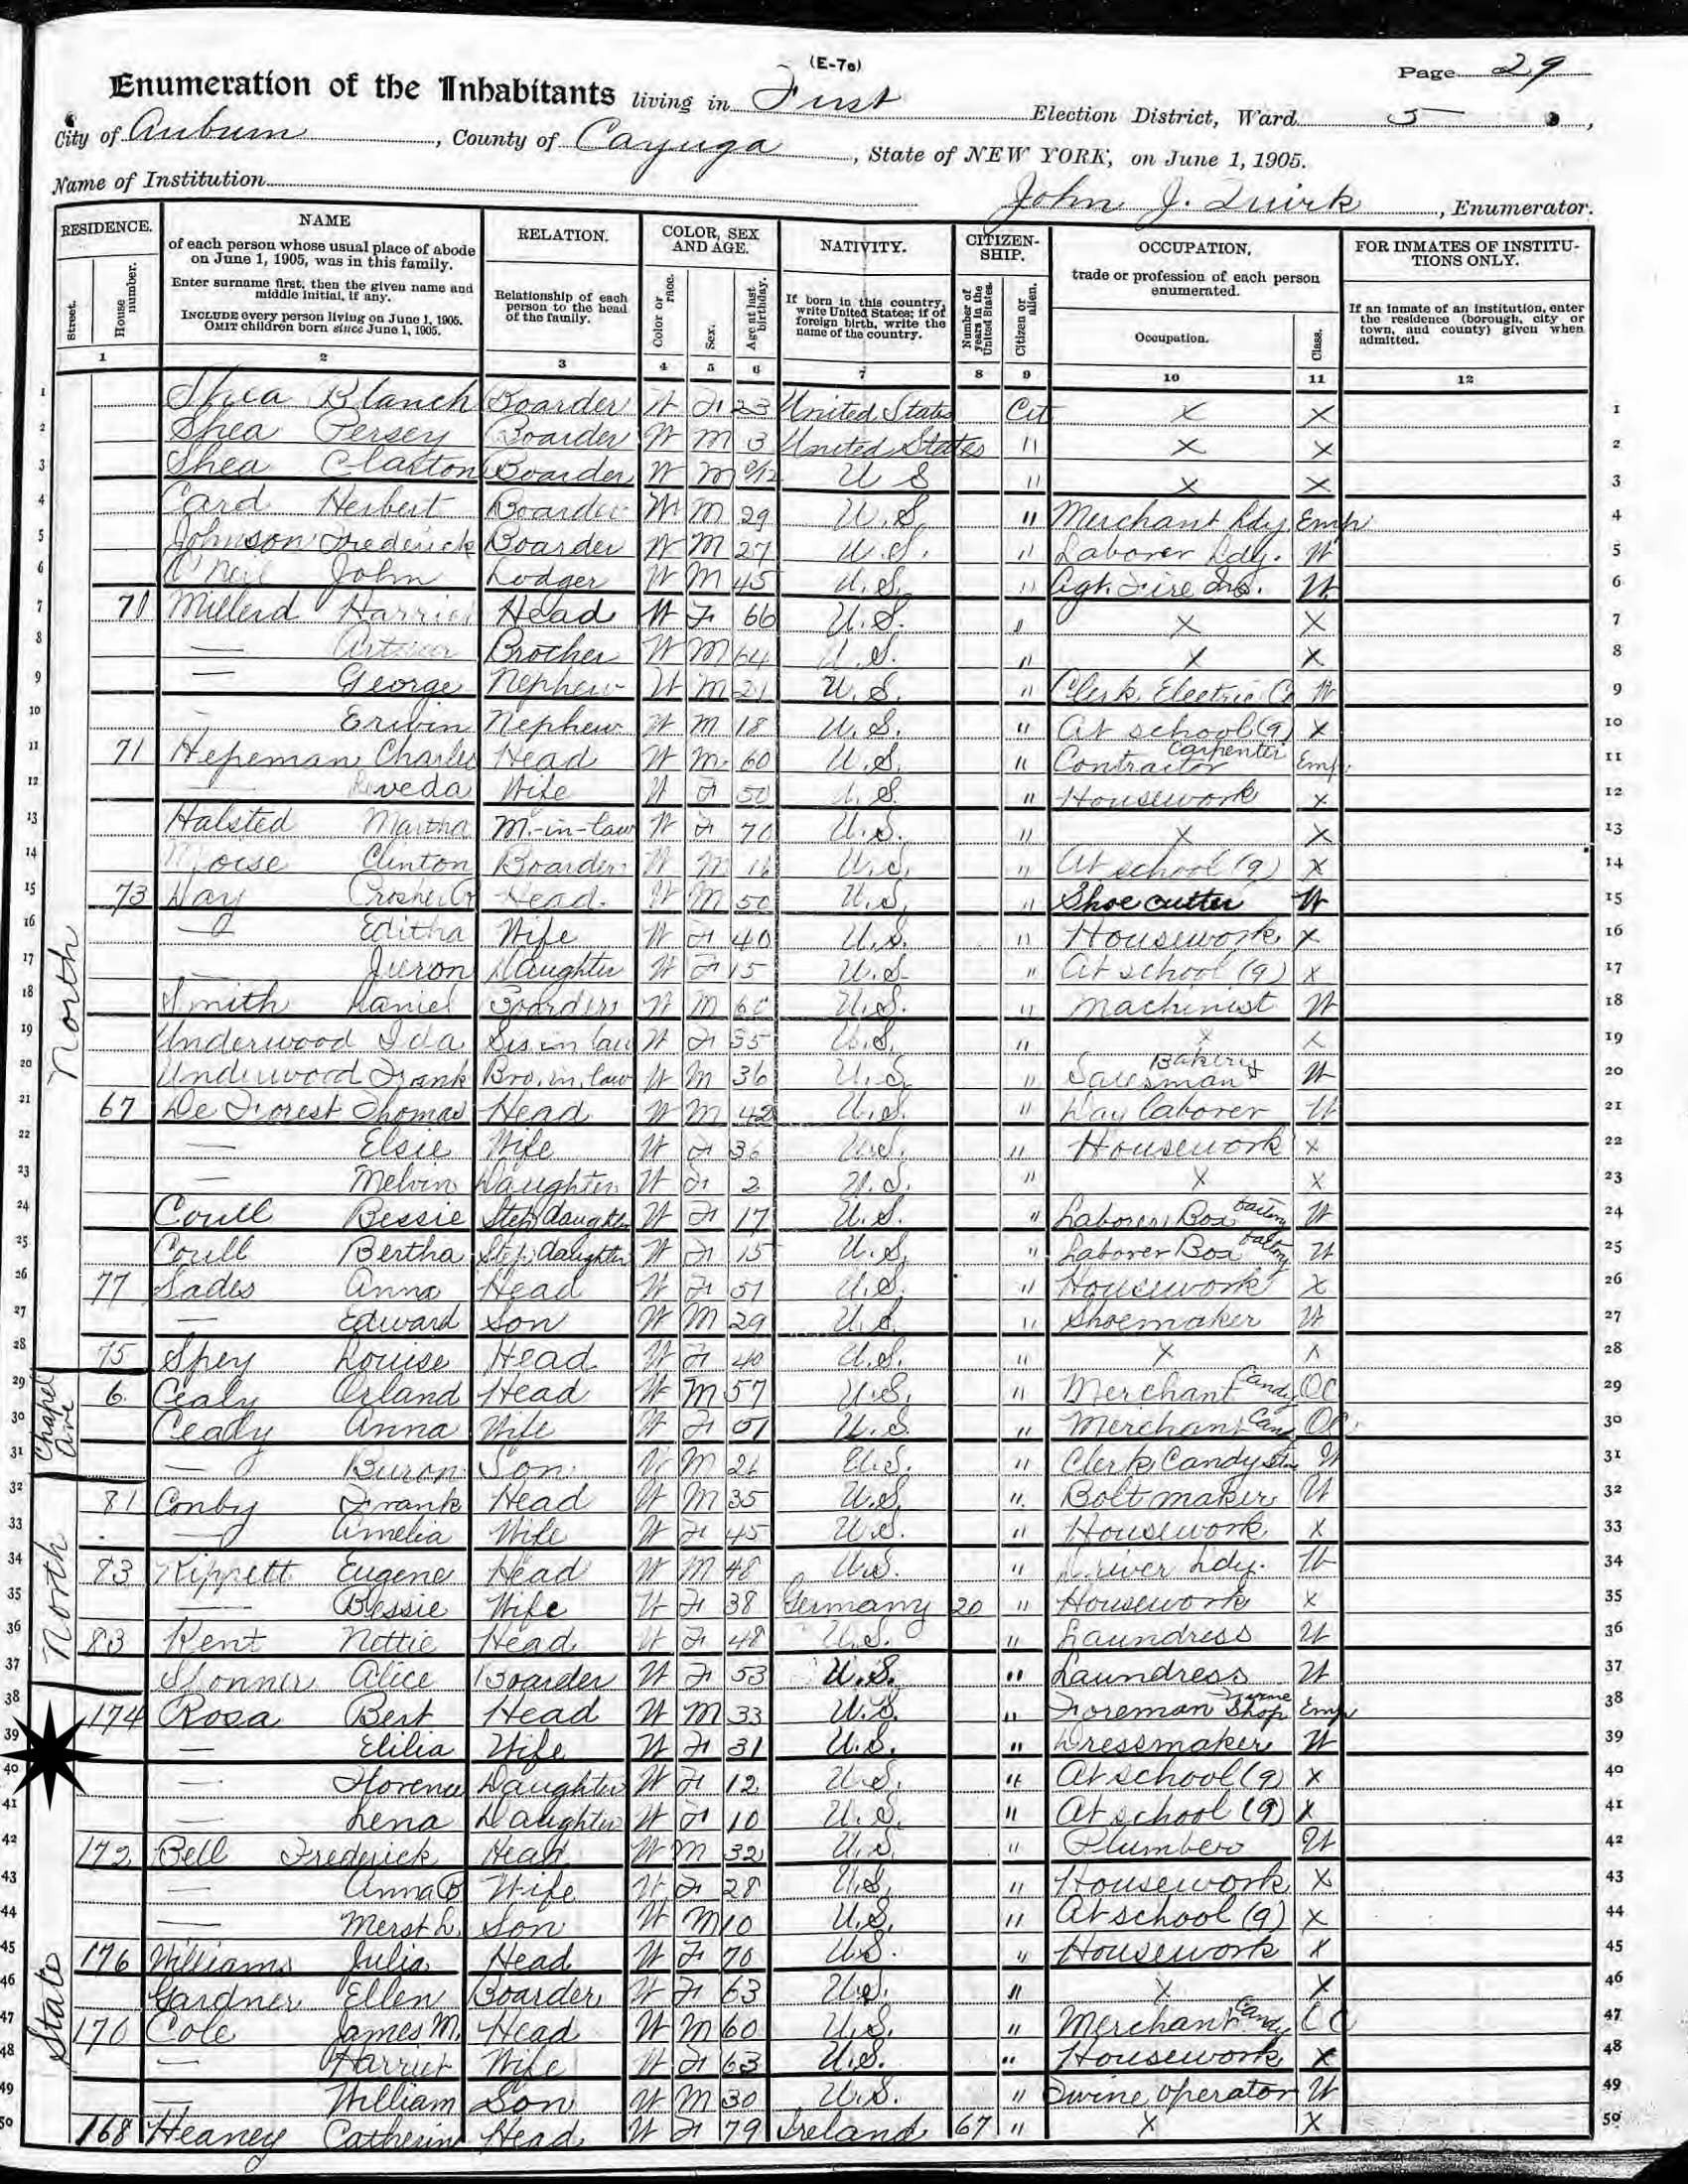 (E-7a)
Page 29
Enumeration of the Inhabitants living in First Election District, Ward 5,
City of Auburn, County of Cayuga, State of NEW YORK, on June 1, 1905.
Name of Institution
John J. Quirk, Enumerator.
RESIDENCE. NAME RELATION. COLOR, SEX AND AGE. NATIVITY. CITIZEN-SHIP. OCCUPATION, FOR INMATES OF INSTITU-TIONS ONLY.
Street. House number.
of each person whose usual place of abode on June 1, 1905, was in this family.
Enter surname first, then the given name and middle initial, if any.
INCLUDE every person living on June 1, 1905.
OMIT children born since June 1, 1905.
Relationship of each person to the head of the family.
Color or race. Sex. Age at last birthday.
If born in this country, write United States; if of foreign birth, write the name of the country.
Number of years in the United States. Citizen or alien.
trade or profession of each person enumerated.
Occupation. Class.
If an inmate of an institution, enter the residence (borough, city or town, and county) given when admitted.
1 2 3 4 5 6 7 8 9 10 11 12
1 Shea Blanch Boarder W F 23 United States Cit X X 1
2 Shea Persey Boarder W M 3 United States " X X 2
3 Shea Boarder W M U S " X X 3
4 Card Herbert Boarder W M 29 U.S. " Merchant Ldy. Emp 4
5 Johnson Frederick Boarder W M 27 U.S. " Laborer Ldy. W 5
6 O'Neil John Lodger W M 45 U.S. " Agt. Fire Ins. W 6
7 71 Millerd Harriet Head W F 66 U.S. " X X 7
8 — Arthur Brother W M 64 U.S. " X X 8
9 — George Nephew W M 21 U.S. " Clerk Electric Co W 9
10 — Erwin Nephew W M 18 U.S. " At school (9) X 10
11 71 Hepeman Charles Head W M 60 U.S. " Contractor Carpenter Emp. 11
12 — Wife W F 50 U.S. " Housework X 12
13 Halsted Martha M.-in-law W F 70 U.S. " X X 13
14 Clinton Boarder W M 16 U.S. " At school (9) X 14
15 North 73 Day Head W M 50 U.S. " Shoe cutter W 15
16 — Editha Wife W F 40 U.S. " Housework X 16
17 — Daughter W F 15 U.S. " At school (9) X 17
18 Smith Daniel Boarder W M U.S. " Machinist W 18
19 Underwood Ida Sis in law W F 35 U.S. " X X 19
20 Underwood Frank Bro. in law W M 36 U.S. " Salesman Bakery W 20
21 67 De Forest Thomas Head W M 42 U.S. " Day laborer W 21
22 — Elsie Wife W F 36 U.S. " Housework X 22
23 — Melvin Daughter W F 2 U.S. " X X 23
24 Coull Bessie Step daughter W F 17 U.S. " Laborer Box factory W 24
25 Coull Bertha Step daughter W F 15 U.S. " Laborer Box factory W 25
26 77 Sades Anna Head W F 51 U.S. " Housework X 26
27 — Edward Son W M 29 U.S. " Shoemaker W 27
28 75 Spey Louise Head W F 40 U.S. " X X 28
29 Chapel Ave 6 Cealy Orland Head W M 57 U.S. " Merchant Candy OA 29
30 Cealy Anna Wife W F 51 U.S. " Merchant Candy OA 30
31 — Buron Son W M 26 U.S. " Clerk Candy Store W 31
32 North 81 Conby Frank Head W M 35 U.S. " Bolt maker W 32
33 — Amelia Wife W F 45 U.S. " Housework X 33
34 83 Kippett Eugene Head W M 48 U.S. " Driver Ldy. W 34
35 — Bessie Wife W F 38 Germany 20 " Housework X 35
36 83 Kent Nettie Head W F 48 U.S. " Laundress W 36
37 Alice Boarder W F 53 U.S. " Laundress W 37
38 State 174 Rosa Bert Head W M 33 U.S. " Foreman Shop Emp 38
39 — Elilia Wife W F 31 U.S. " Dressmaker W 39
40 — Florence Daughter W F 12 U.S. " At school (9) X 40
41 — Lena Daughter W F 10 U.S. " At school (9) X 41
42 172 Bell Frederick Head W M 32 U.S. " Plumber W 42
43 — Anna B Wife W F 28 U.S. " Housework X 43
44 — Merst L. Son W M 10 U.S. " At school (9) X 44
45 176 Williams Julia Head W F 70 U.S. " Housework X 45
46 Gardner Ellen Boarder W F 63 U.S. " X X 46
47 170 Cole James M. Head W M 60 U.S. " Merchant Candy 47
48 — Harriet Wife W F 63 U.S. " Housework X 48
49 — William Son W M 30 U.S. " operator W 49
50 168 Heaney Catherin Head W F 79 Ireland 67 " X X 50